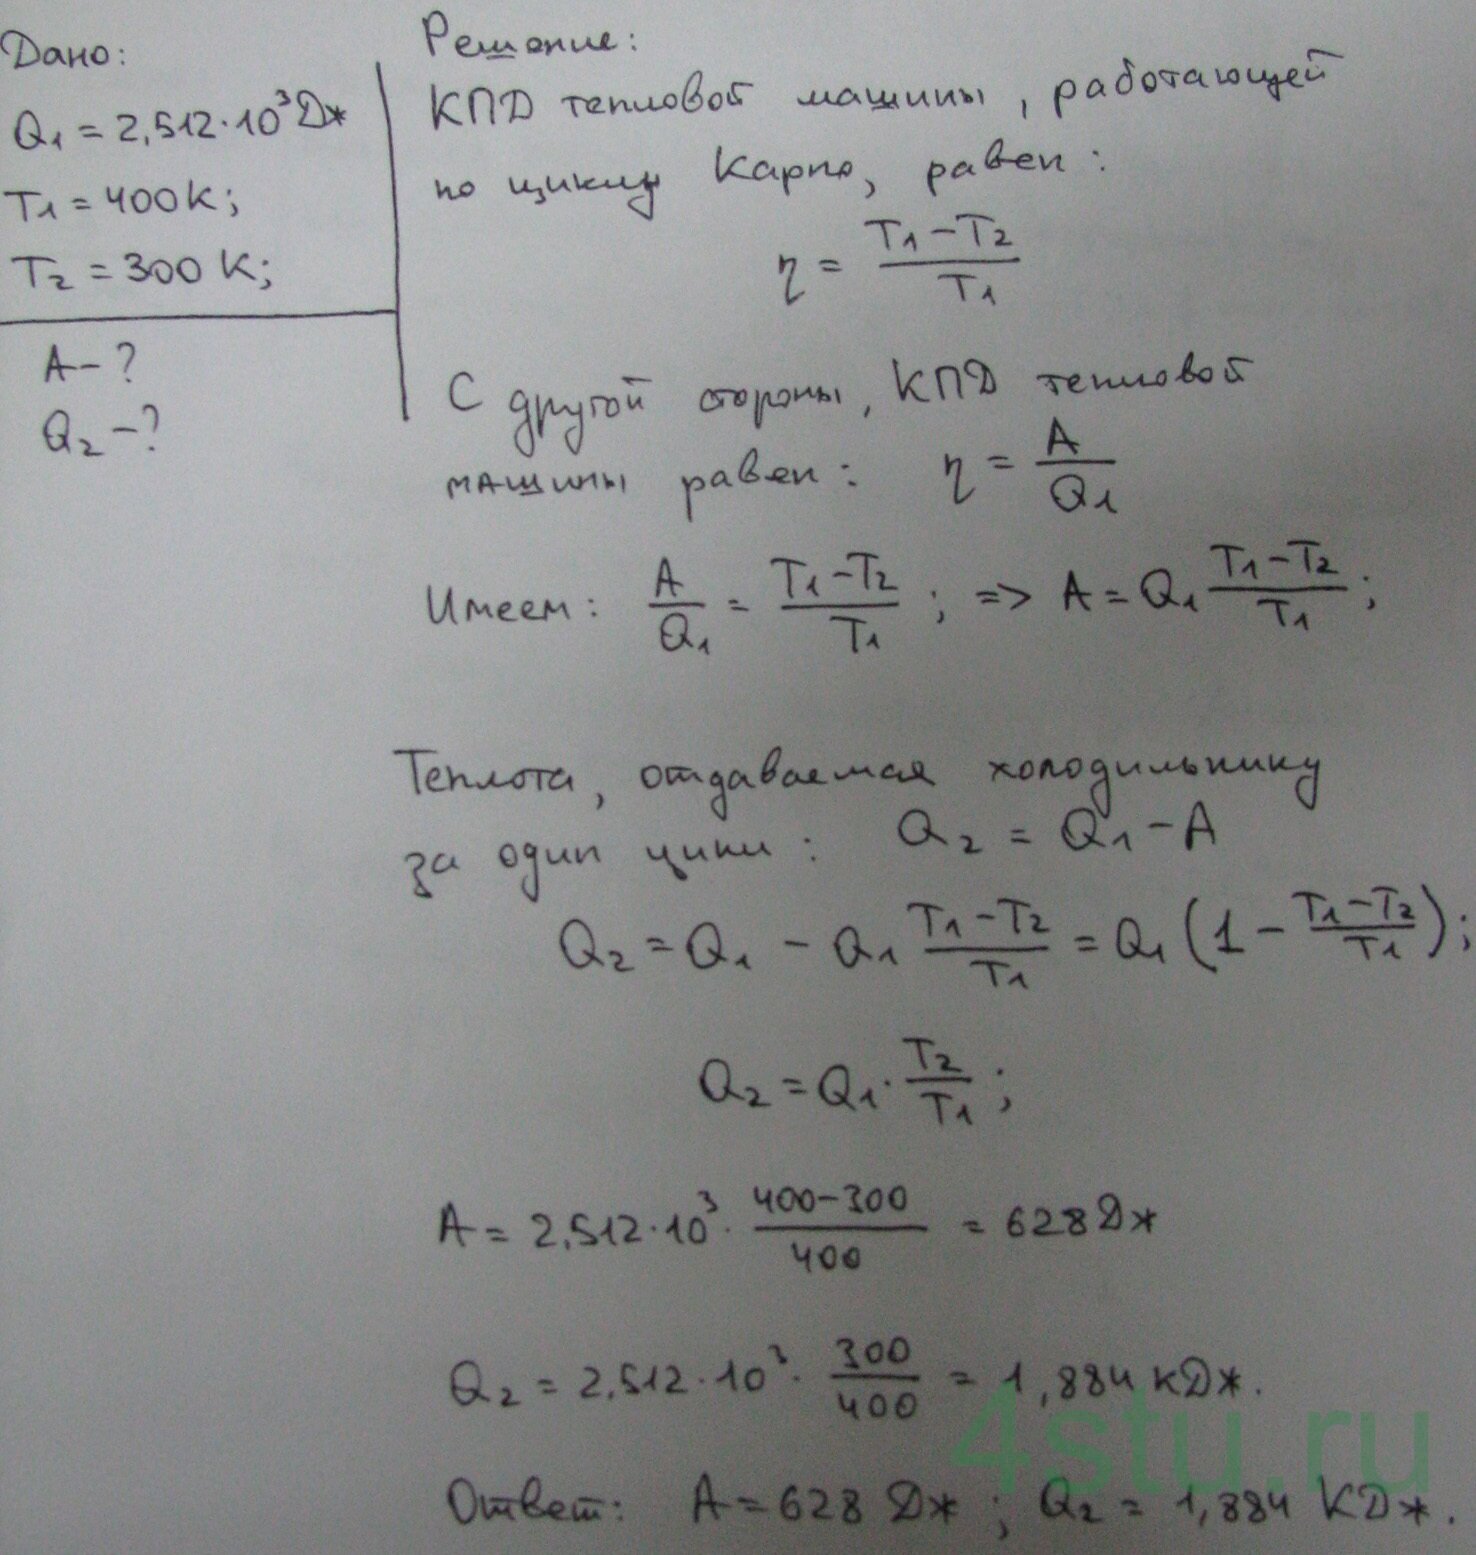 Дано:
Q₁ = 2,512·10³ Дж
T₁ = 400 К;
T₂ = 300 К;
A – ?
Q₂ – ?
Решение:
КПД тепловой машины, работающей
по циклу Карно, равен:
η = (T₁ – T₂) / T₁
С другой стороны, КПД тепловой
машины равен: η = A / Q₁
Имеем: A / Q₁ = (T₁ – T₂) / T₁ ; => A = Q₁ (T₁ – T₂) / T₁ ;
Теплота, отдаваемая холодильнику
за один цикл: Q₂ = Q₁ – A
Q₂ = Q₁ – Q₁ (T₁ – T₂) / T₁ = Q₁ (1 – (T₁ – T₂) / T₁);
Q₂ = Q₁ · T₂ / T₁ ;
A = 2,512·10³ · (400 – 300) / 400 = 628 Дж
Q₂ = 2,512·10³ · 300 / 400 = 1,884 кДж.
4stu.ru
Ответ: A = 628 Дж ; Q₂ = 1,884 кДж.